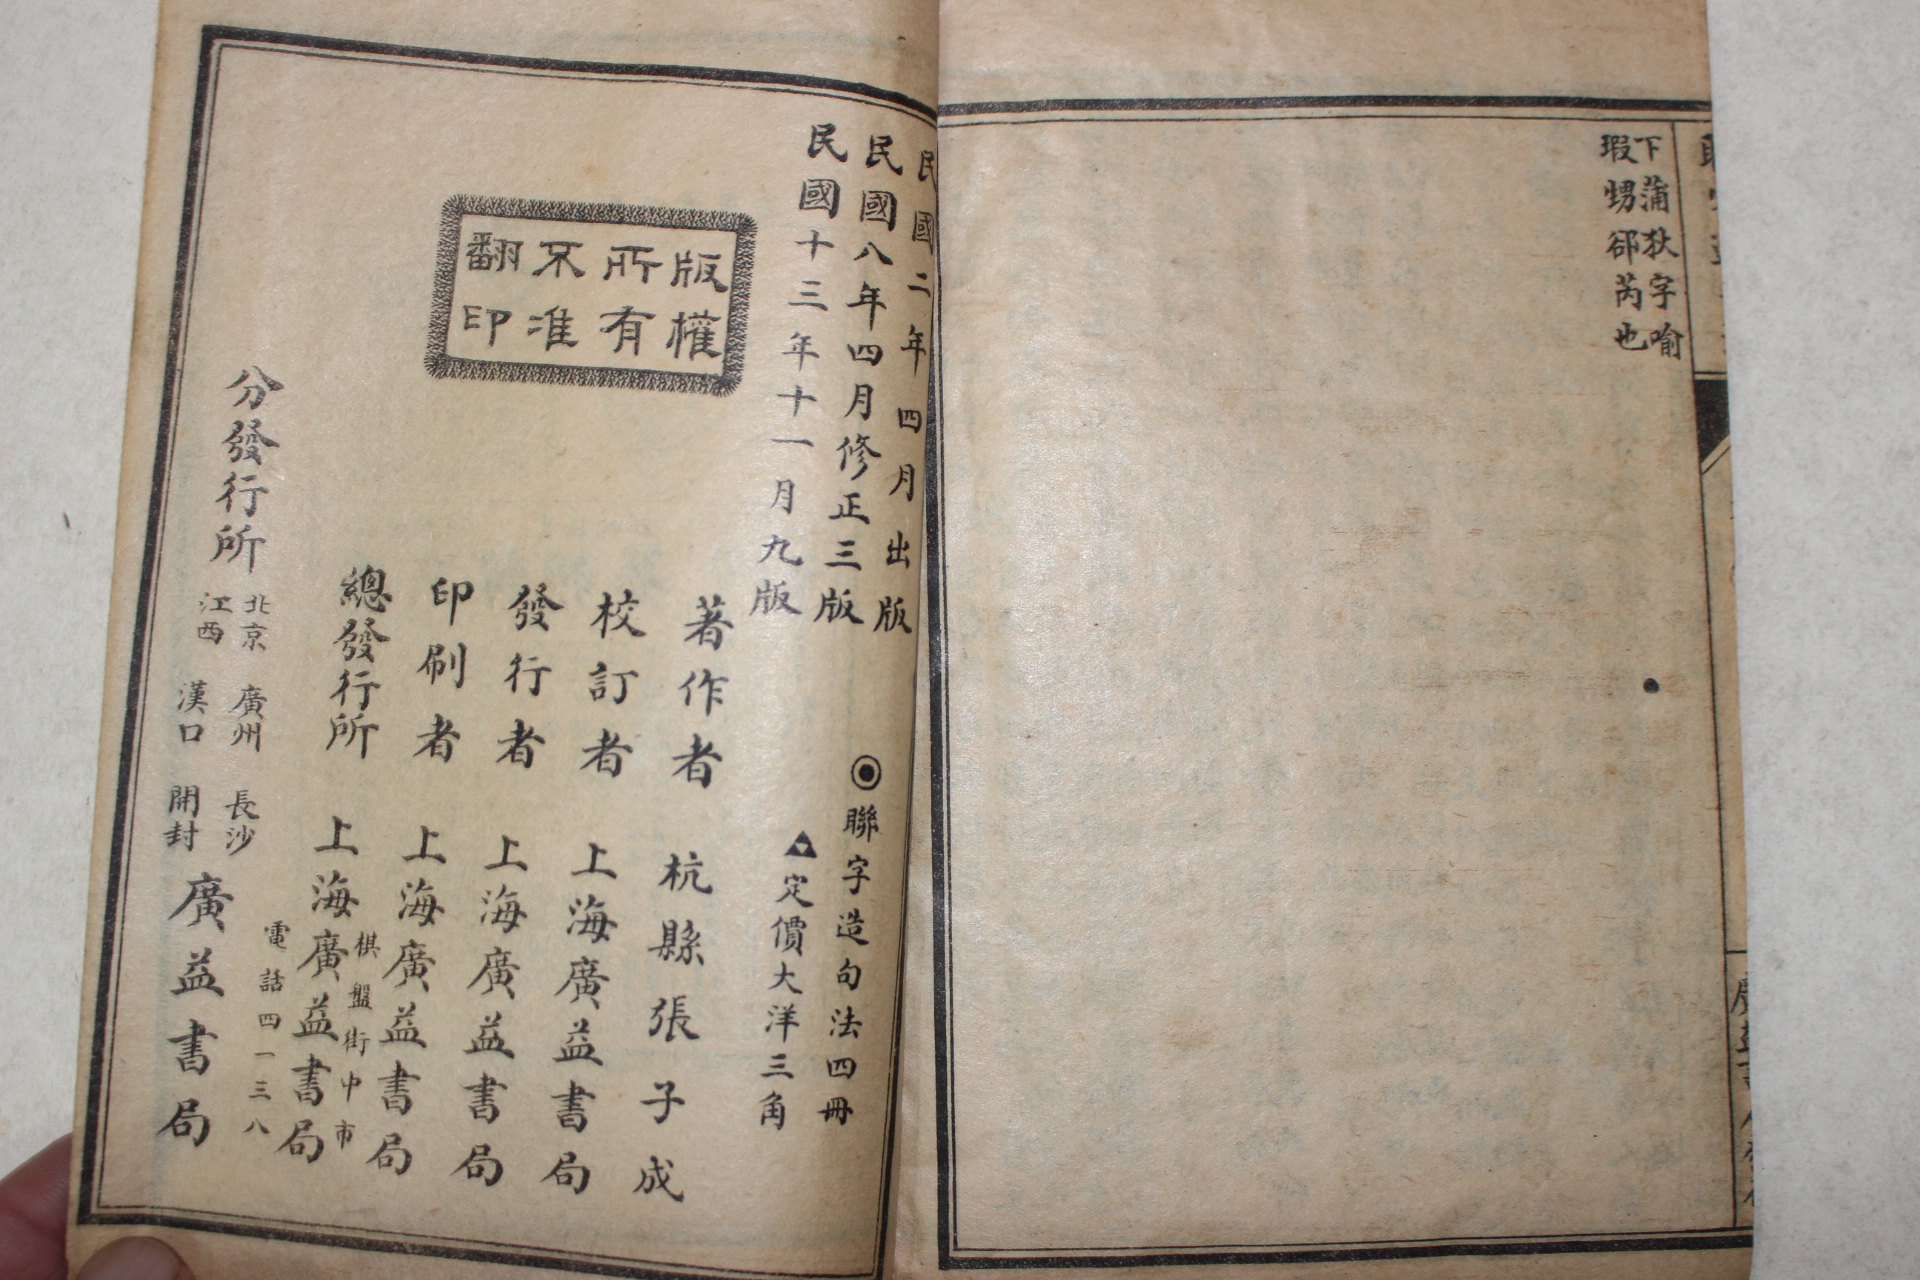 下蒲狄字喻
瑕甥郤芮也
民國二年四月出版
民國八年四月修正三版
民國十三年十一月九版
◉聯字造句法四冊
▲定價大洋三角
版權
所有
不准
翻印
著作者 杭縣張子成
校訂者 上海廣益書局
發行者 上海廣益書局
印刷者 上海廣益書局
總發行所 上海廣益書局
棋盤街中市
電話四一三八
分發行所
北京 廣州 長沙
江西 漢口 開封
廣益書局